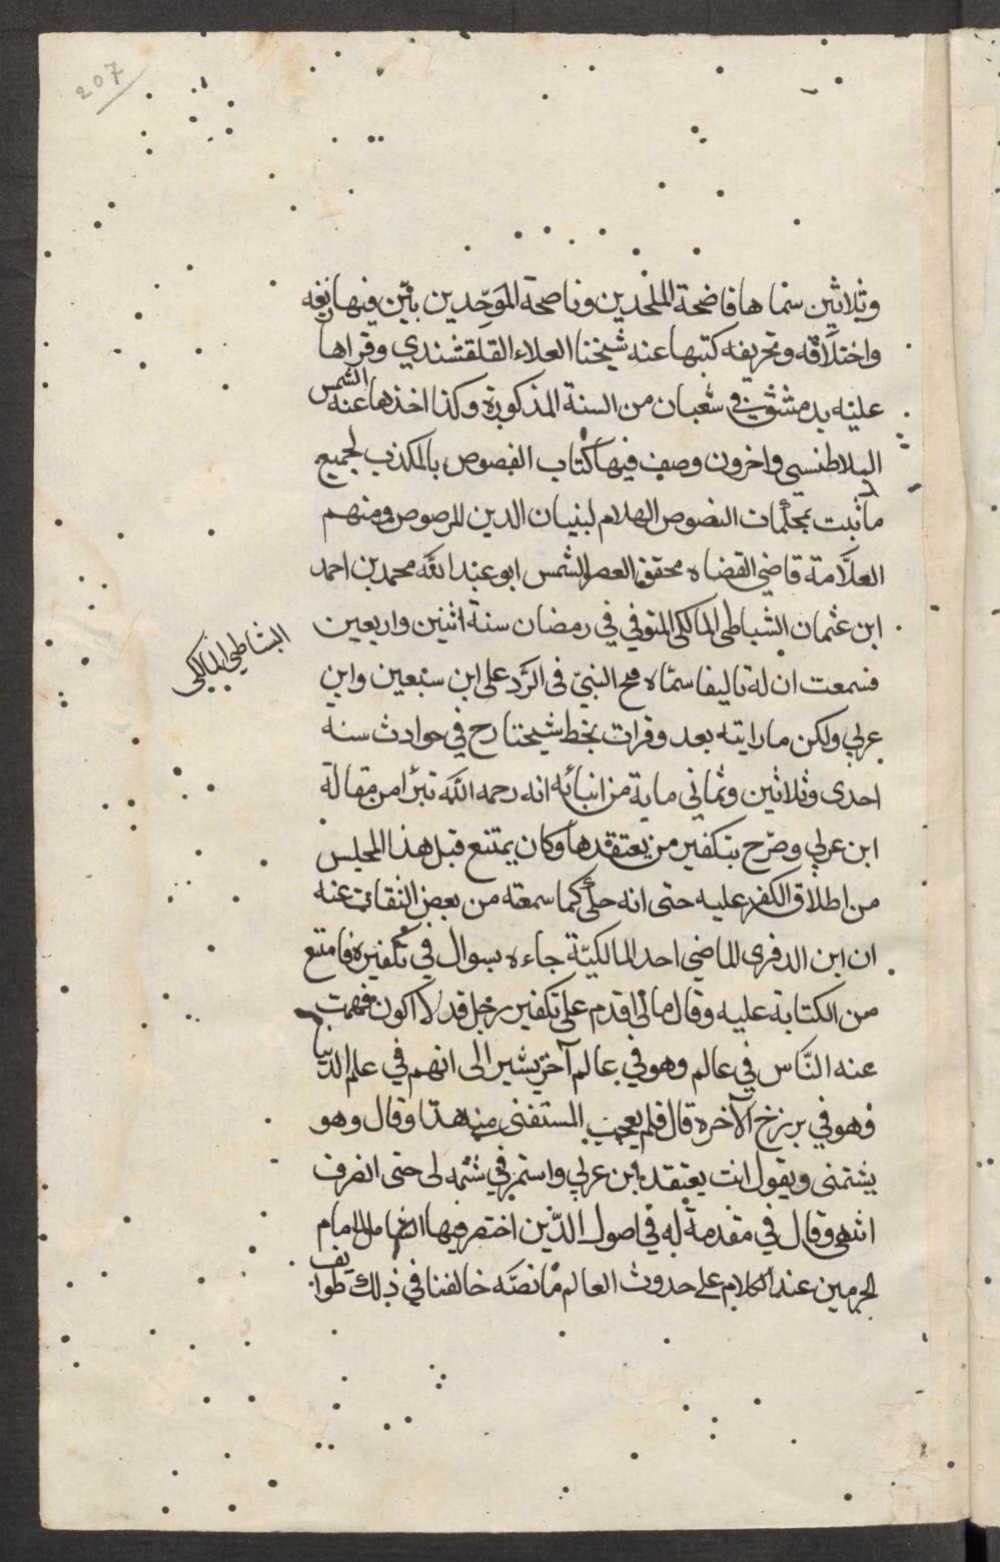 207
وثلاثين سماها فاضحة الملحدين وناصحة الموَحِّدين بيّن فيها زيغه
واختلاقه وتحريفه كتبها عنه شيخنا العلاء القلقشندي وقراها
عليه بدمشق في شعبان من السنة المذكورة وكذا اخذها عنه الشمس
البلاطنسي واخرون وصف فيها كتاب الفصوص بالمكذب لجميع
ما ثبت بمحكمات النصوص الهادم لبنيان الدين المرصوص ومنهم
العلّامة قاضي القضاه محقق العصر الشمس ابو عبد الله محمد بن احمد
ابن عثمان البساطي المالكي المتوفي في رمضان سنة اثنين واربعين
فسمعت ان له تاليفا سمّاه فتح النبيّ في الرّد على ابن سبعين وابن
عربي ولكن ما رايته بعد وقرات بخط شيخنا رح في حوادث سنه
احدى وثلاثين وثماني ماية من انبائه انه رحمه الله تبرّا من مقالة
ابن عربي وصرّح بتكفير من يعتقدها وكان يمتنع قبل هذا المجلس
من اطلاق الكفر عليه حتى انه حكى كما سمعته من بعض الثقات عنه
ان ابن الدفرى الماضي احد المالكيّة جاءه بسوال في تكفيره فامتنع
من الكتابة عليه وقال مالي اقدم على تكفير رجل قد لا اكون فهمت
عنه النّاس في عالم وهو في عالم آخر يشير الى انهم في علم الدنيا
وهو في برزخ الآخره قال فلم يعجب المستفتى منه هذا وقال وهو
يشتمنى ويقول انت يعتقد ابن عربي واستمر في شتمه لى حتى انصرف
انتهى وقال في مقدمة له في اصول الدّين اختصر فيها الشامل لامام
الحرمين عند الكلام على حدوث العالم ما نصّه خالفنا في ذلك طوايف
البساطي المالكي